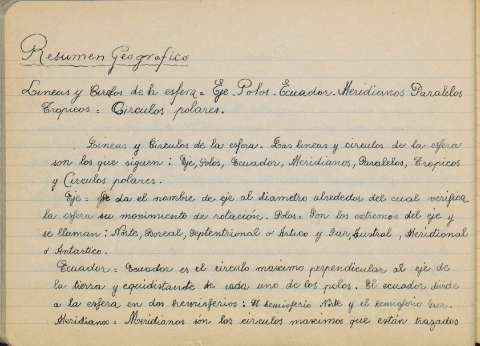 Resumen Geografico
Lineas y Circulos de la esfera = Eje - Polos - Ecuador - Meridianos Paralelos
Tropicos = Circulos polares.
Lineas y Circulos de la esfera. Las lineas y circulos de la esfera
son los que siguen: Eje, Polos, Ecuador, Meridianos, Paralelos, Tropicos
y Circulos polares.
Eje = Se da el nombre de eje al diametro alrededor del cual verifica
la esfera su movimiento de rotación. Polos = Son los extremos del eje y
se llaman: Norte, Boreal, Septentrional o Artico y Sur, Austral, Meridional
o Antartico.
Ecuador = Ecuador es el circulo maximo perpendicular al eje de
la tierra y equidistante de cada uno de los polos. El ecuador divide
a la esfera en dos hemisferios: El hemisferio Norte y el hemisferio Sur.
Meridianos = Meridianos són los circulos maximos que están trazados